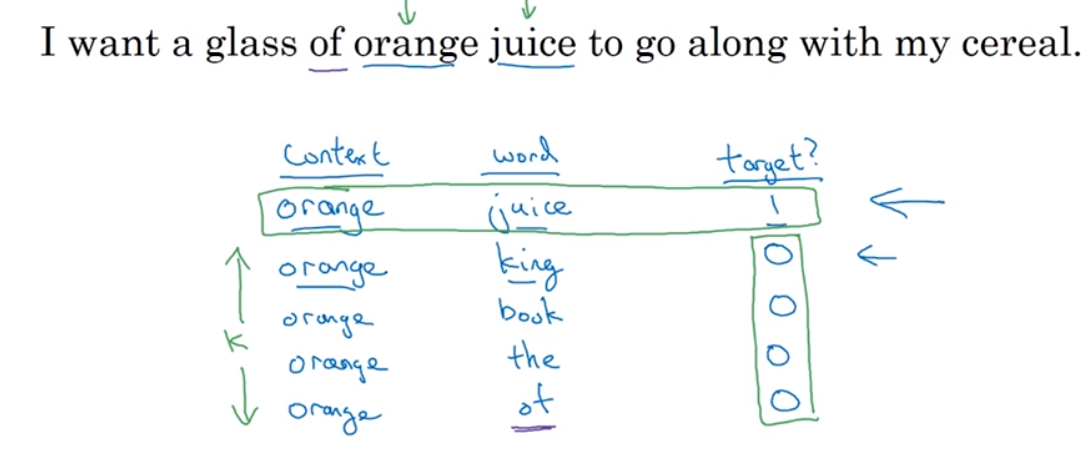 I want a glass of orange juice to go along with my cereal.
context word target?
orange juice 1
orange king 0
orange book 0
k
orange the 0
orange of 0